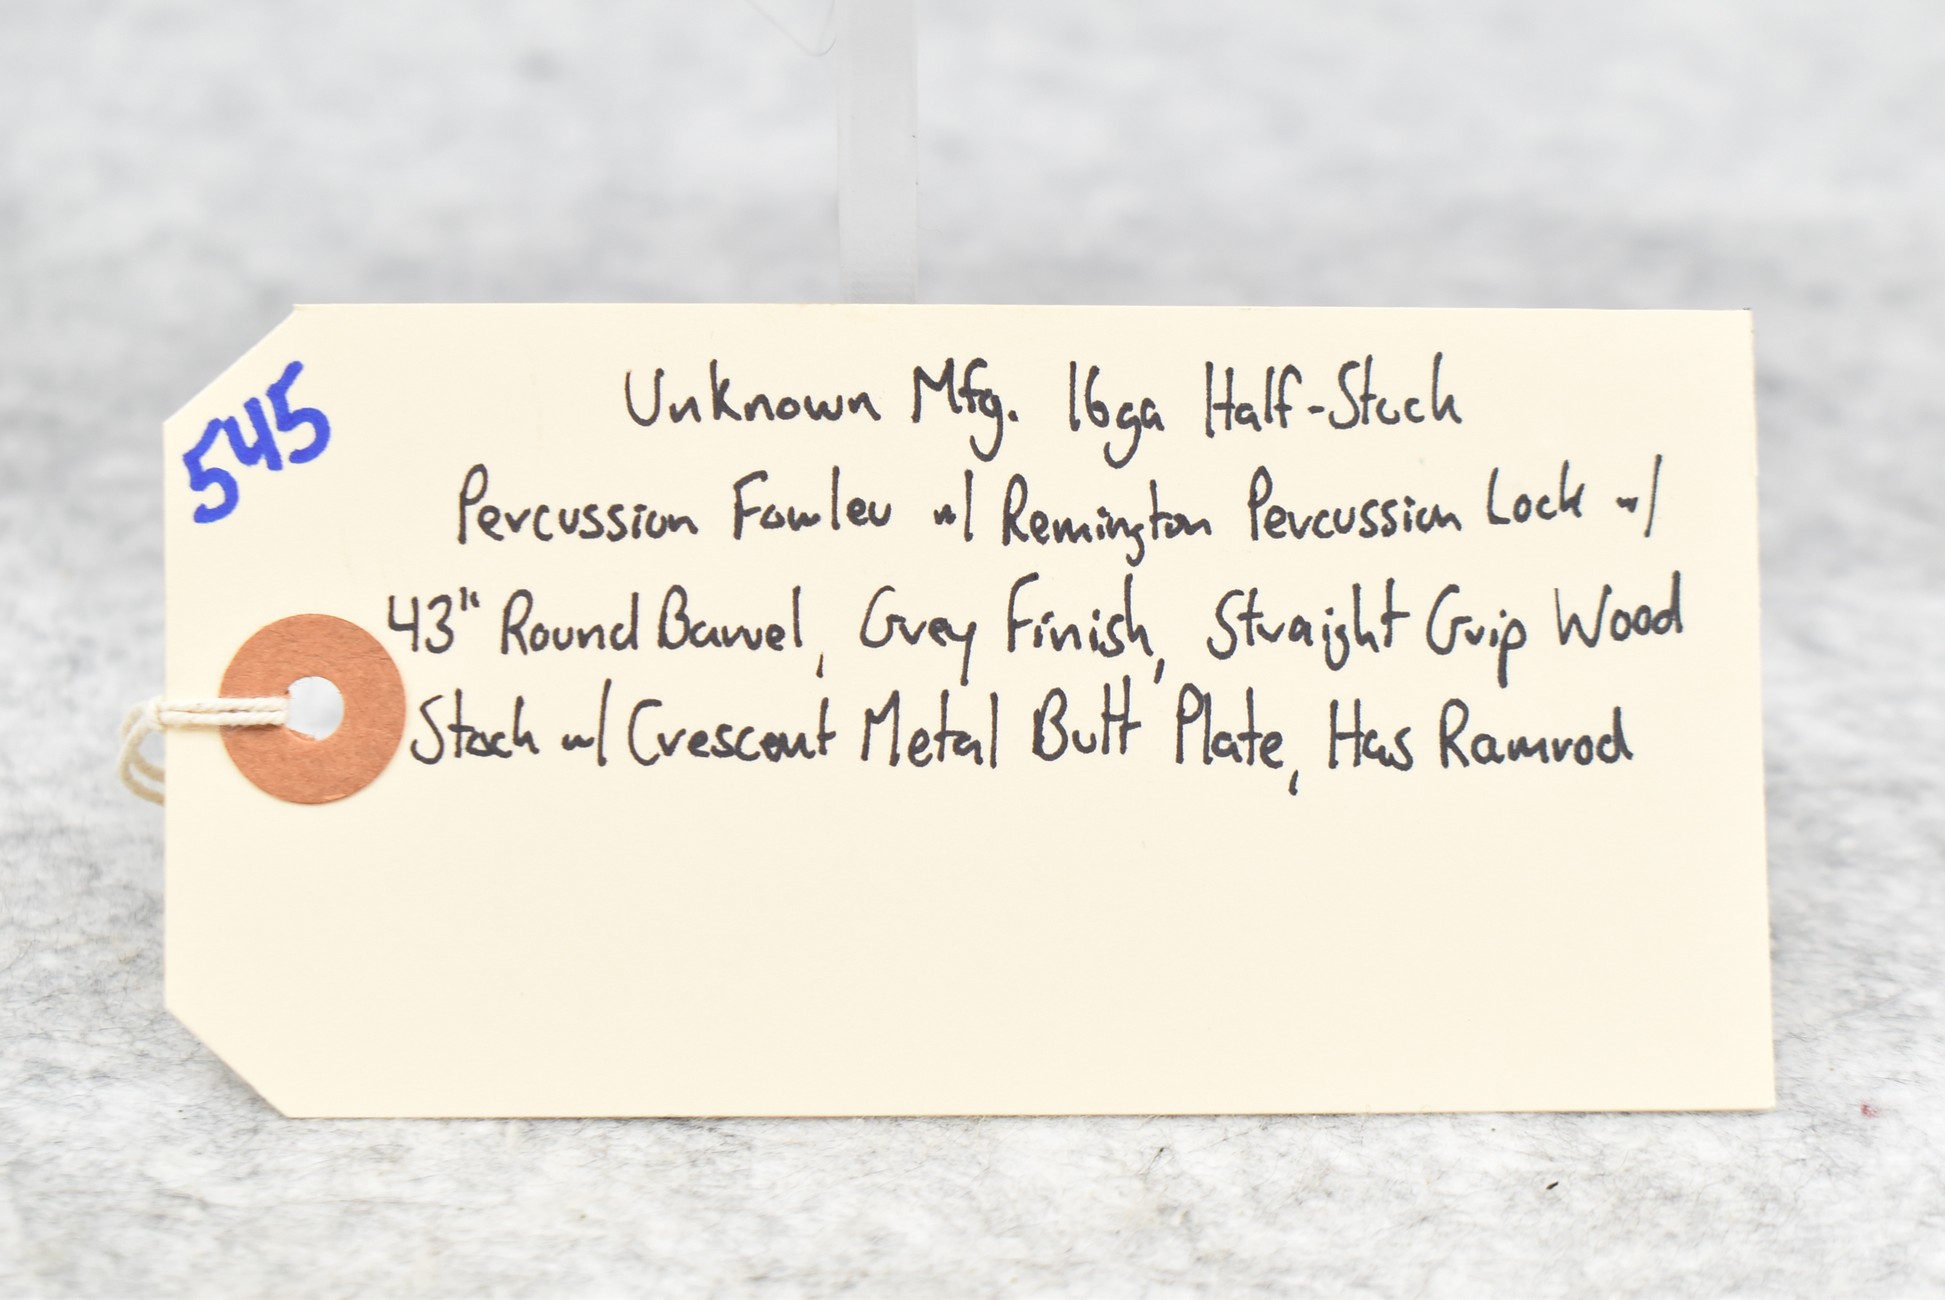 545
Unknown Mfg. 16ga Half-Stock
Percussion Fowler w/ Remington Percussion Lock w/
43" Round Barrel, Grey Finish, Straight Grip Wood
Stock w/ Crescent Metal Butt Plate, Has Ramrod